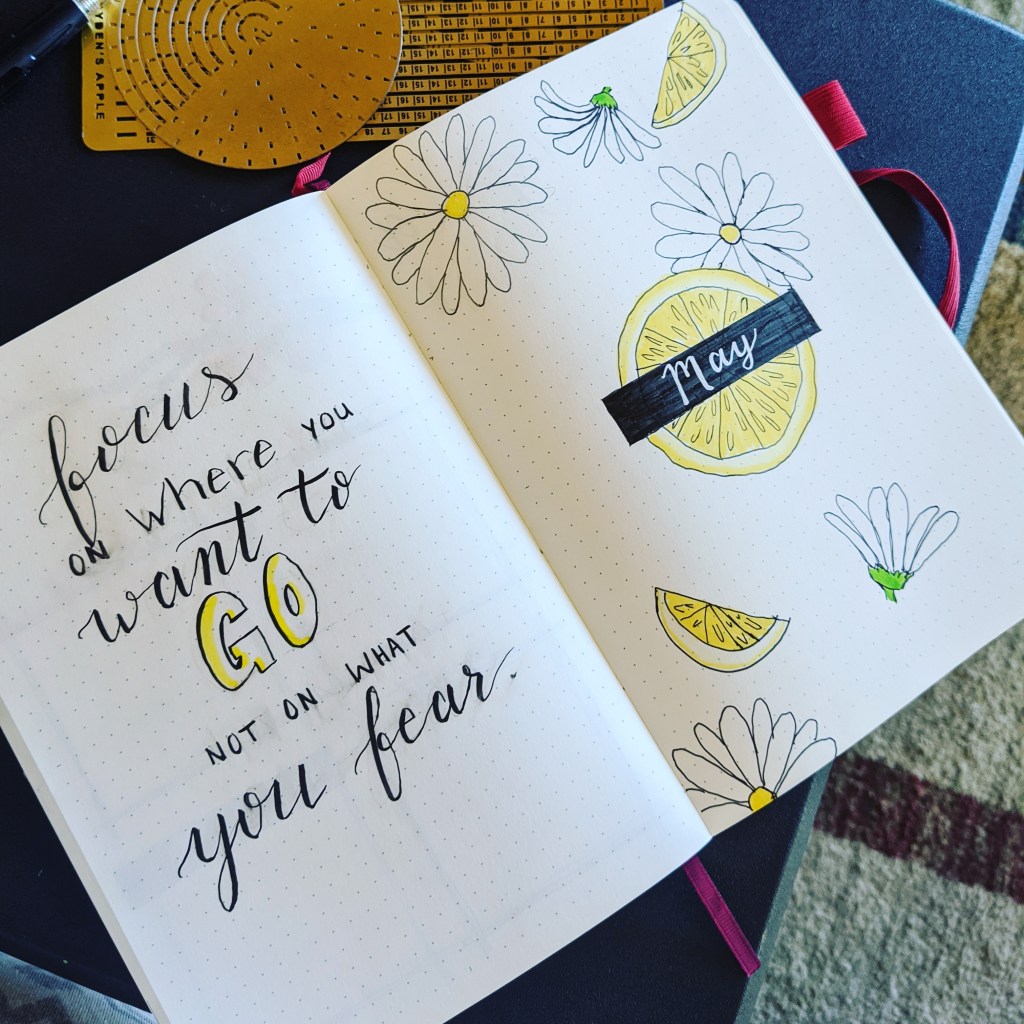 focus
ON where YOU
want to
GO
NOT ON WHAT
you fear.
May
YDEN'S APPLE